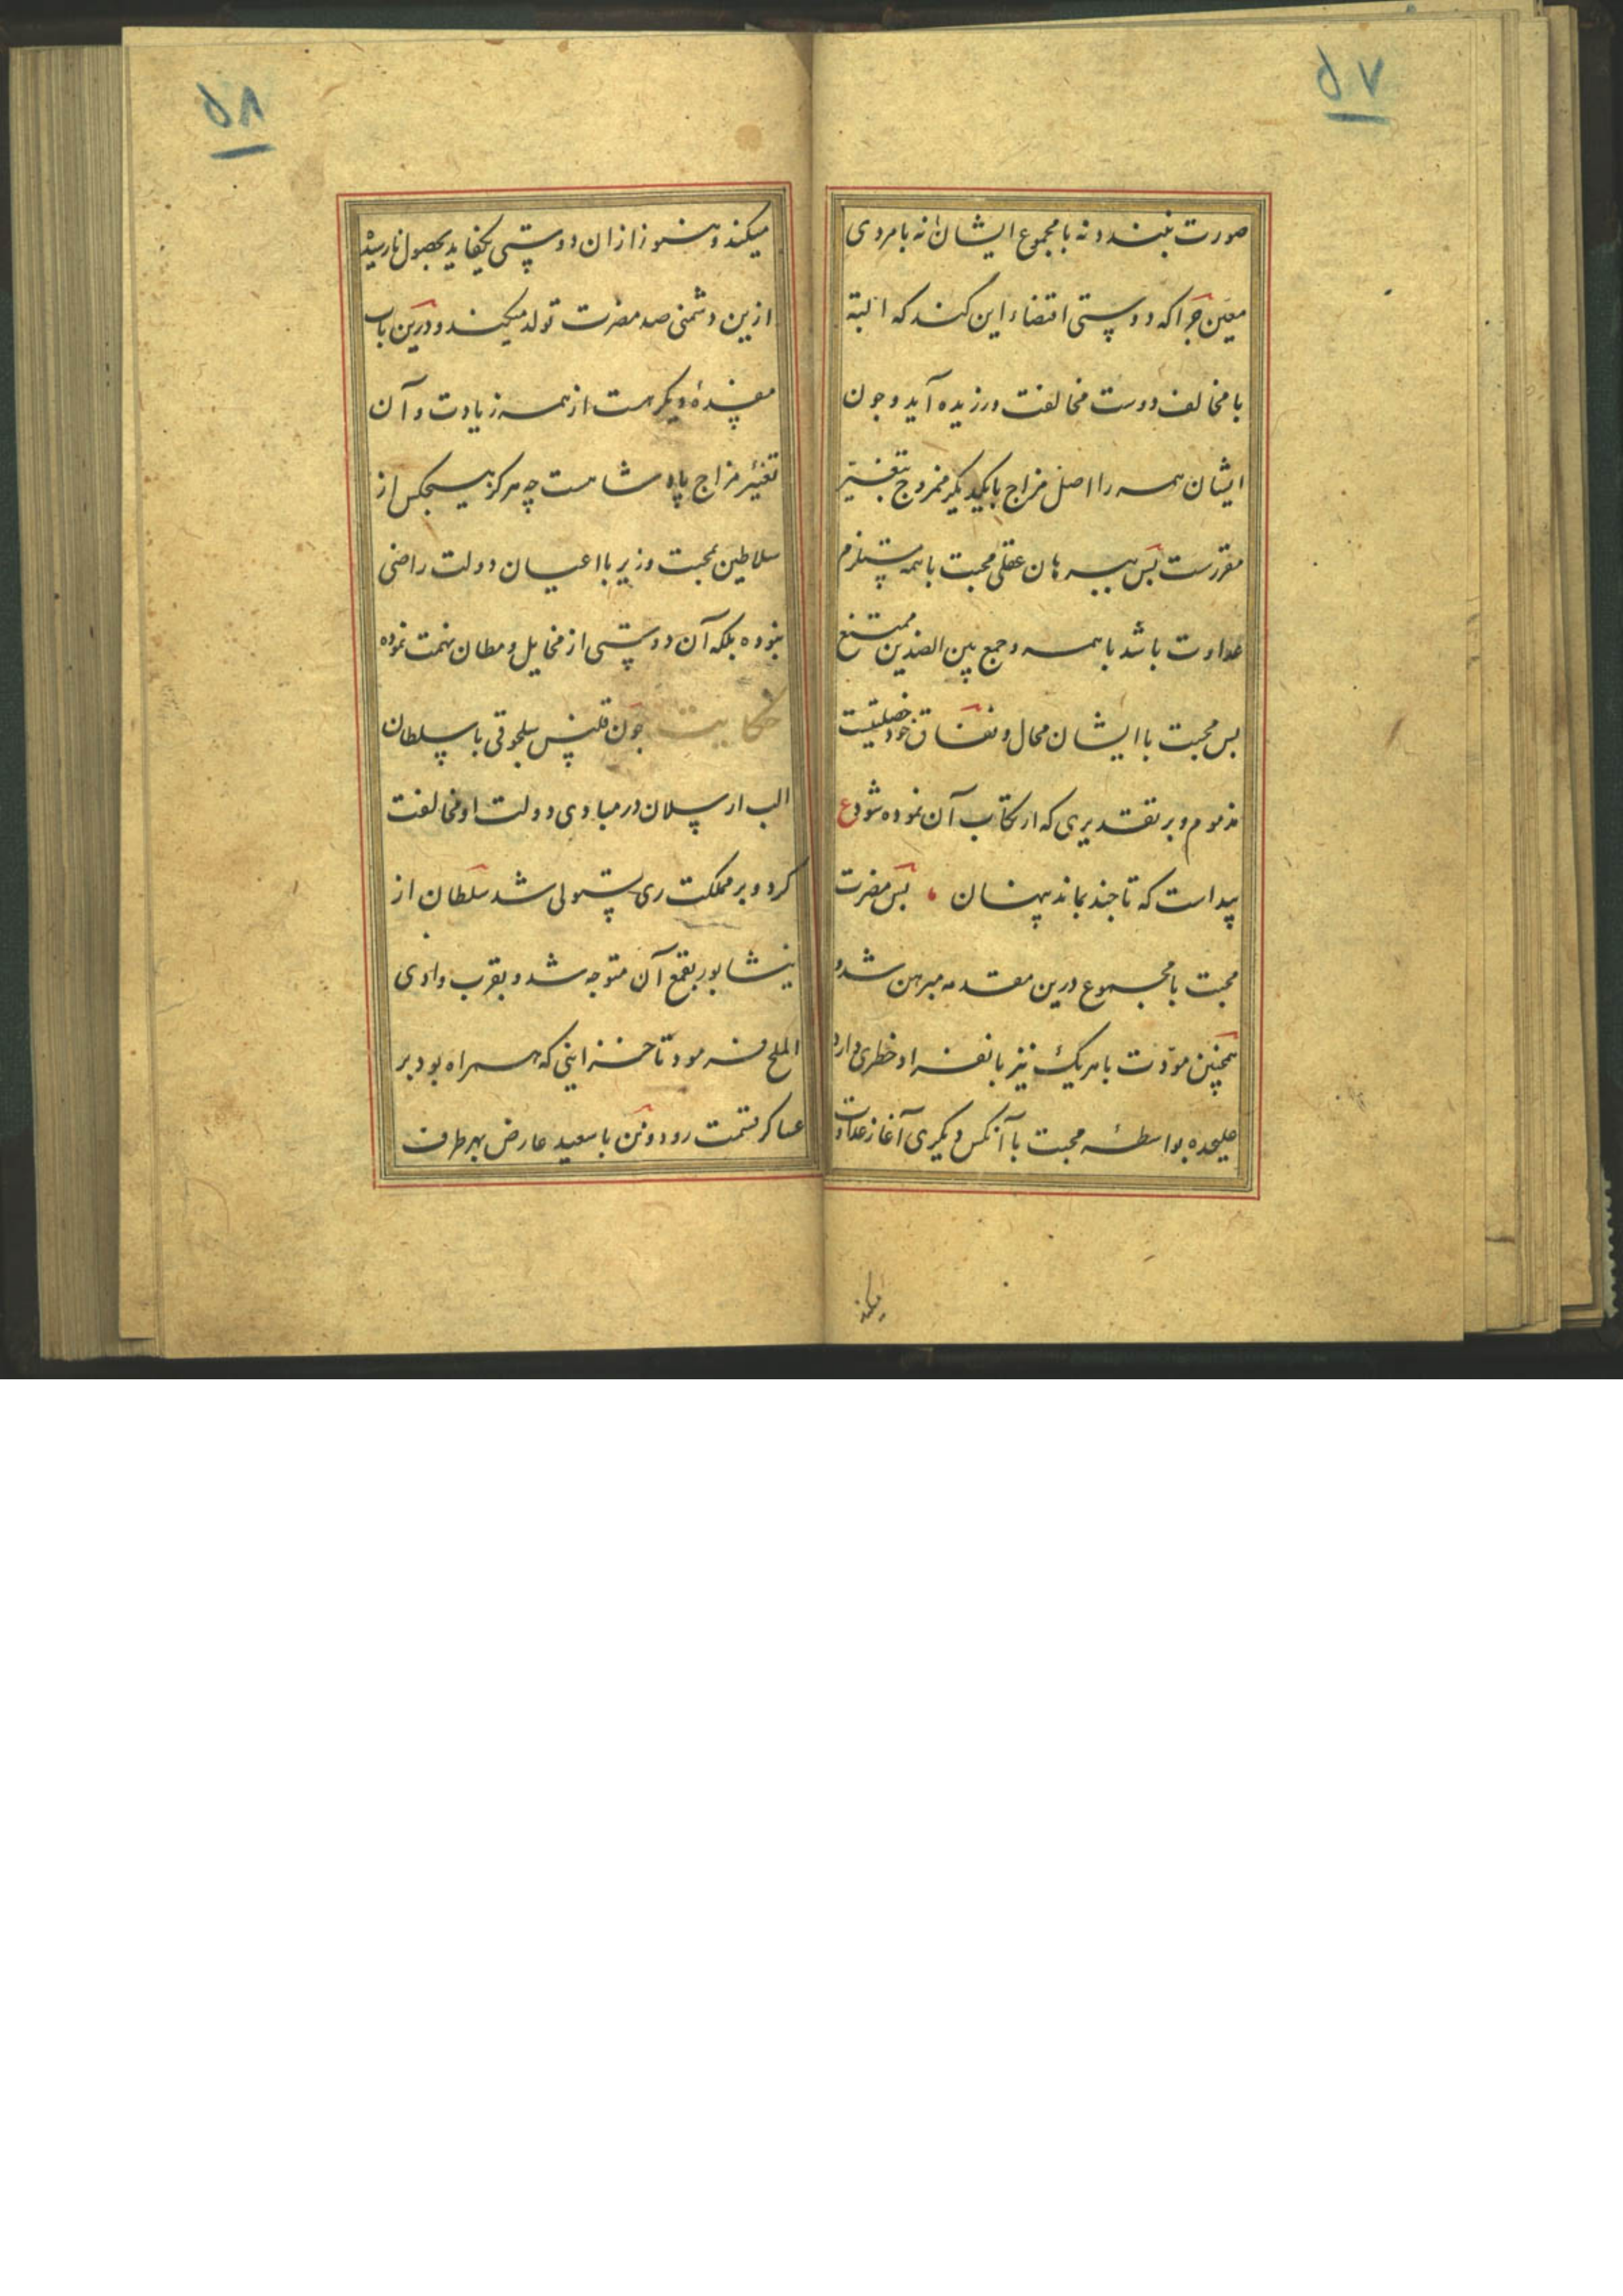 ۵۷
صورت نبندد نه با مجموع ایشان نه با مردی
معین جرا که دوستی اقتضاء این کند که البتة
با مخالف دوست مخالفت ورزیده آید و جون
ایشان همه را اصل مزاج با یکدیگر ممزوج بتغییر
مقررست بس ببرهان عقلی محبت با همه مستلزم
عداوت باشد با همه و جمع بین الضدین ممتنع
بس محبت با ایشان محال و نفاق خود خصلتیست
مذموم و بر تقدیری که ارتکاب آن نموده شود ع
پیداست که تا جند بماند پنهان بس مضرت
محبت با مجموع درین مقدمه مبرهن شد و
همچنین مودّت با هر یک نیز بانفراد خطری دارد
علیحده بواسطهٔ محبت با آنکس دیگری آغاز عداوت
میکند
۵۸
میکند و هنوز از آن دوستی یکفایده بحصول نارسیده
ازین دشمنی صد مضرت تولد میکند و درین باب
مفسدهٔ دیگر هست از همه زیادت و آن
تغیّر مزاج پادشاهست چه هرگز هیچکس از
سلاطین بمحبت وزیر با اعیان دولت راضی
نبوده بلکه آن دوستی از مخایل و مظان تهمت نموده
حکایت جون قتلمش سلجوقی با سلطان
الب ارسلان در مبادی دولت او مخالفت
کرد و بر مملکت ری مستولی شد سلطان از
نیشابور بقمع آن متوجه شد و بقرب وادی
الملح فرمود تا خزاینی که همراه بود بر
عساکر قسمت رود و من با سعید عارض بهر طرف